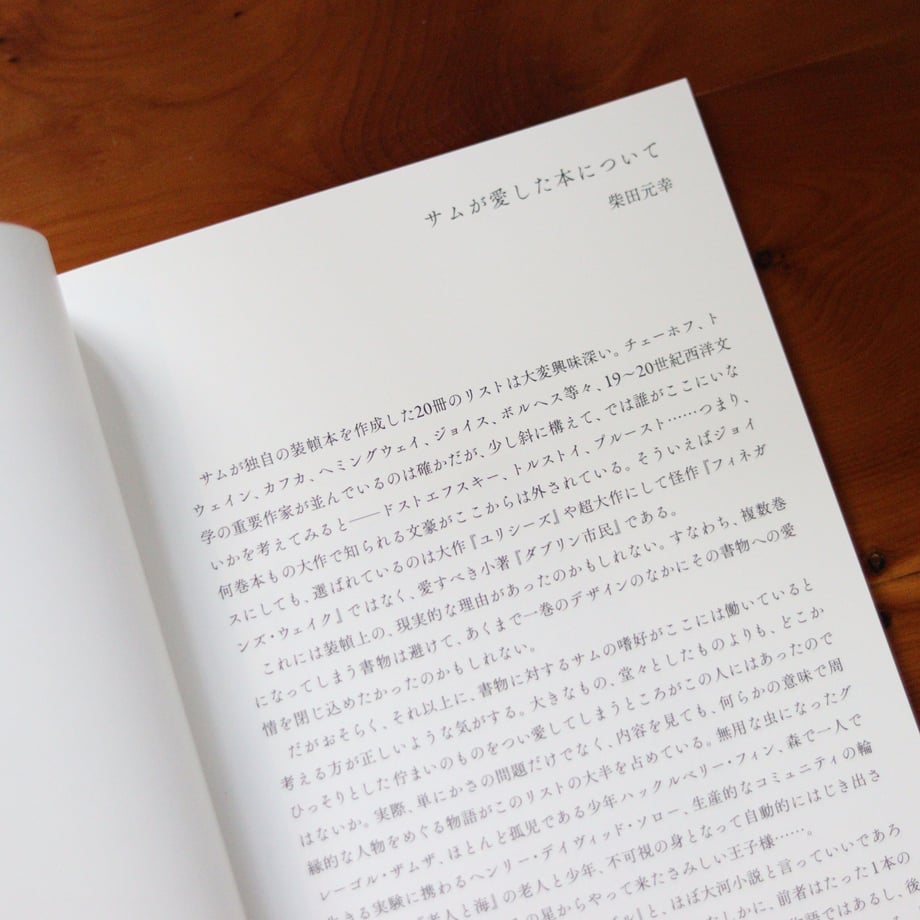 サムが愛した本について
柴田元幸
サムが独自の装幀本を作成した20冊のリストは大変興味深い。チェーホフ、ト
ウェイン、カフカ、ヘミングウェイ、ジョイス、ボルヘス等々、19〜20世紀西洋文
学の重要作家が並んでいるのは確かだが、少し斜に構えて、では誰がここにいな
いかを考えてみると——ドストエフスキー、トルストイ、プルースト……つまり、
何巻本もの大作で知られる文豪がここからは外されている。そういえばジョイ
スにしても、選ばれているのは大作『ユリシーズ』や超大作にして怪作『フィネガ
ンズ・ウェイク』ではなく、愛すべき小著『ダブリン市民』である。
これには装幀上の、現実的な理由があったのかもしれない。すなわち、複数巻
になってしまう書物は避けて、あくまで一巻のデザインのなかにその書物への愛
情を閉じ込めたかったのかもしれない。
だがおそらく、それ以上に、書物に対するサムの嗜好がここには働いていると
考える方が正しいような気がする。大きなもの、堂々としたものよりも、どこか
ひっそりとした佇まいのものをつい愛してしまうところがこの人にはあったので
はないか。実際、単にかさの問題だけでなく、内容を見ても、何らかの意味で周
縁的な人物をめぐる物語がこのリストの大半を占めている。無用な虫になったグ
レーゴル・ザムザ、ほとんど孤児である少年ハックルベリー・フィン、森で一人で
生きる実験に携わるヘンリー・デイヴィッド・ソロー、生産的なコミュニティの輪
『老人と海』の老人と少年、不可視の身となって自動的にはじき出さ
の星からやって来たさみしい王子様……。
』と、ほぼ大河小説と言っていいであろ
かに、前者はたった1本の
語ではあるし、後